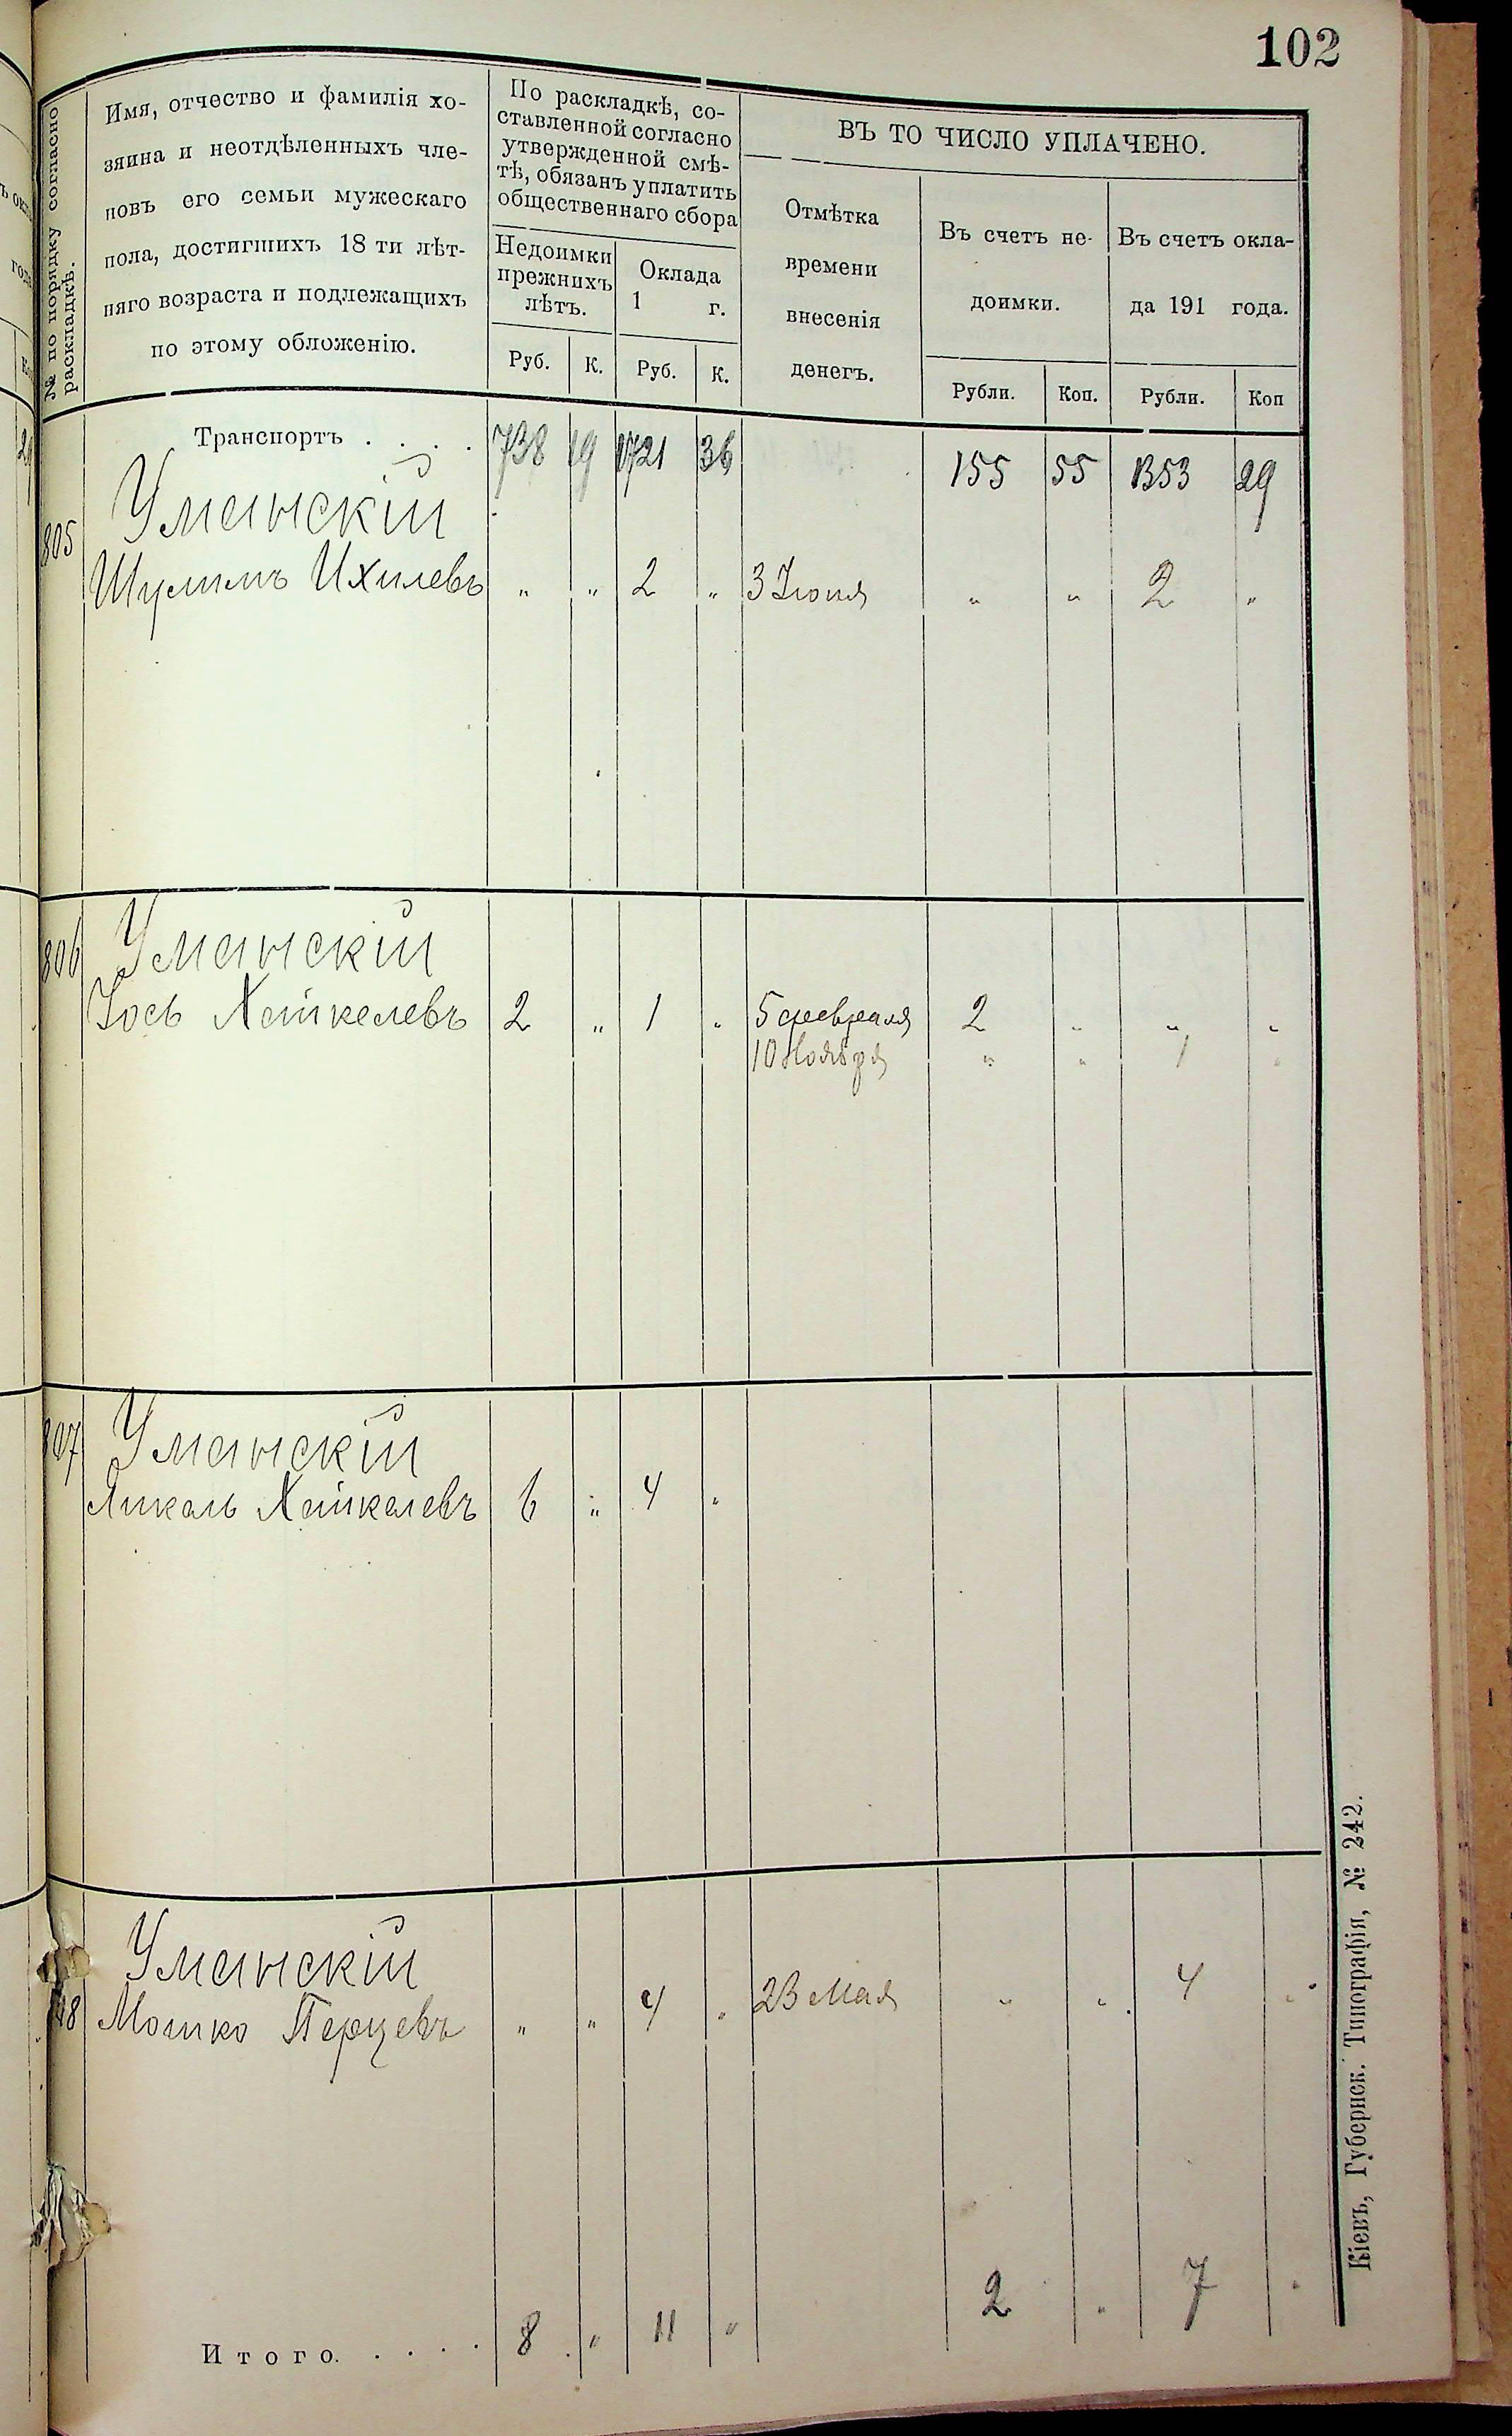 102
№ по порядку согласно
раскладкѣ.
Имя, отчество и фамилія хо-
зяина и неотдѣленныхъ чле-
новъ его семьи мужескаго
пола, достигшихъ 18 ти лѣт-
няго возраста и подлежащихъ
по этому обложенію.
По раскладкѣ, со-
ставленной согласно
утвержденной смѣ-
тѣ, обязанъ уплатить
общественнаго сбора
Недоимки
прежнихъ
лѣтъ.
Оклада
1 г.
Руб. К. Руб. К.
ВЪ ТО ЧИСЛО УПЛАЧЕНО.
Отмѣтка
времени
внесенія
денегъ.
Въ счетъ не-
доимки.
Въ счетъ окла-
да 191 года.
Рубли. Коп. Рубли. Коп
Транспортъ . . . . 738 19 1721 36 155 55 1353 29
805 Уманскій
Шулимъ Ихилевъ " " 2 " 3 Іюня " " 2 "
806 Уманскій
Іось Хайкелевъ 2 " 1 " 5 февраля 2 " " "
10 Ноября " " 1 "
807 Уманскій
Янкель Хайкелевъ 6 " 4 "
Уманскій
Мошко Перцевъ " " 4 " 23 Мая " " 4 "
Итого. . . . . 8 " 11 " 2 " 7 "
Кіевъ, Губернск. Типографія, № 242.